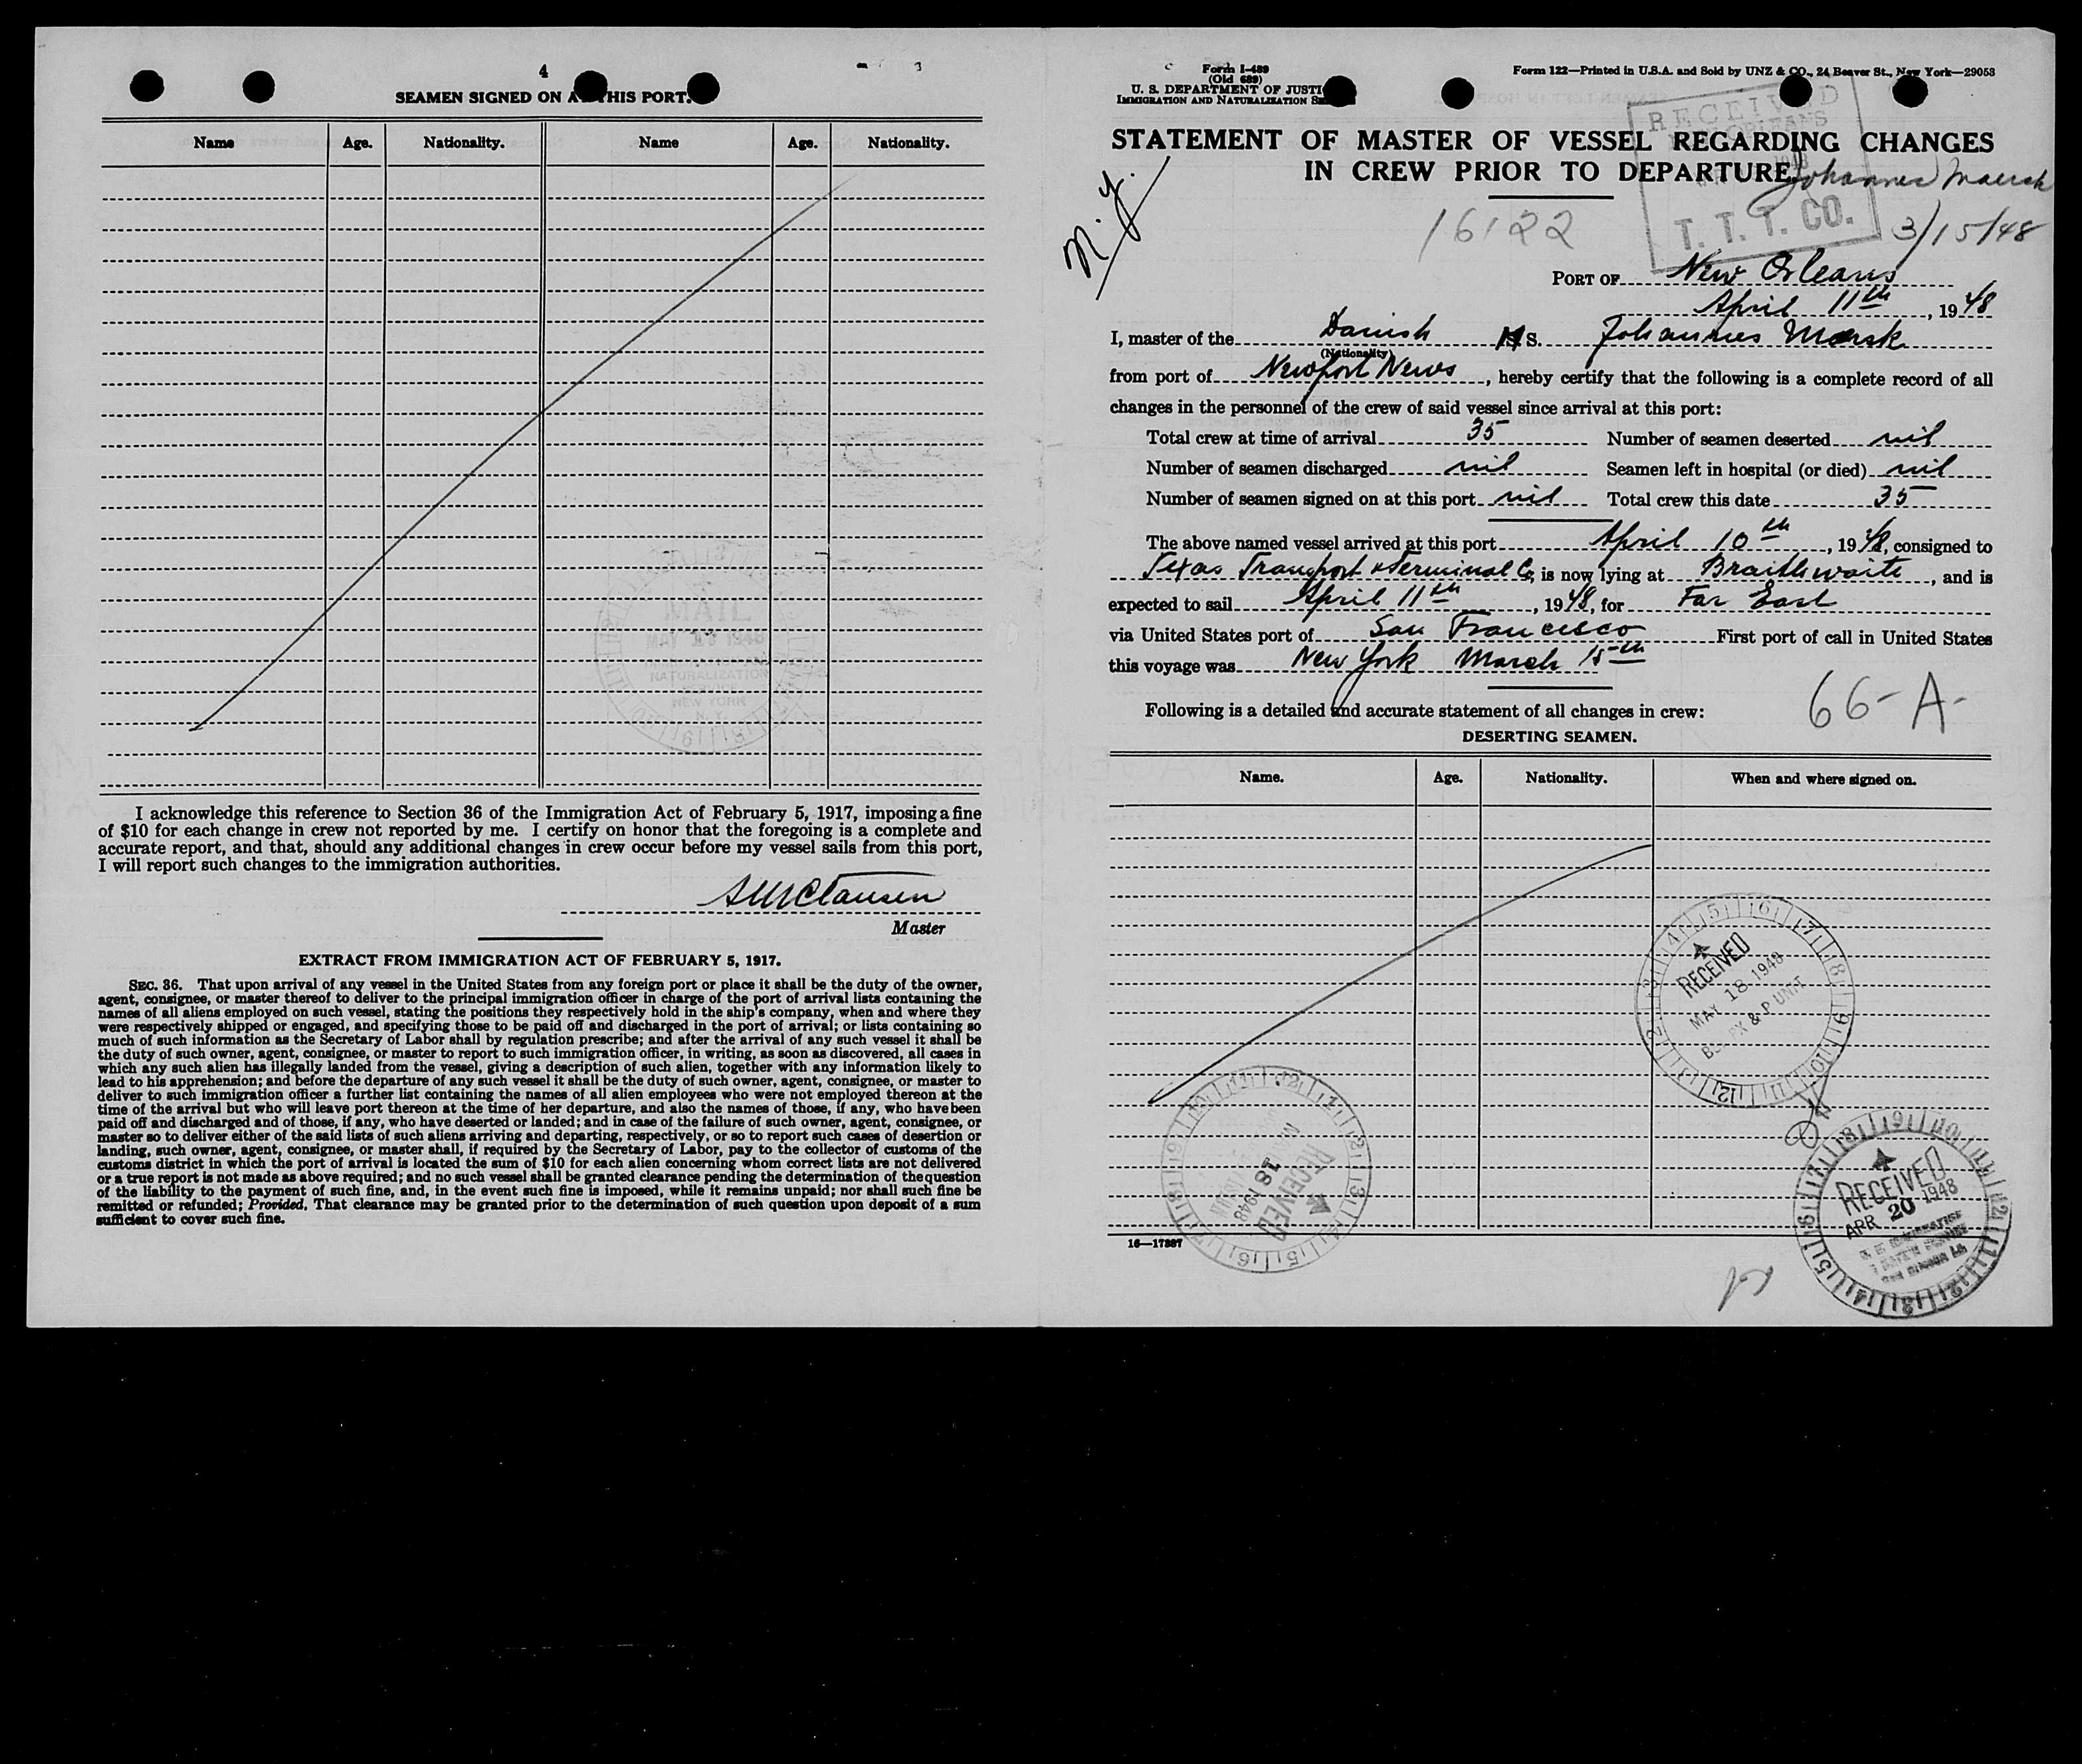 4
SEAMEN SIGNED ON A HIS PORT.
Name Age. Nationality. Name Age. Nationality.
MAIL
MAY 1948
NATURALIZATION
SERVICE
NEW YORK
N. Y.
I acknowledge this reference to Section 36 of the Immigration Act of February 5, 1917, imposing a fine
of $10 for each change in crew not reported by me. I certify on honor that the foregoing is a complete and
accurate report, and that, should any additional changes in crew occur before my vessel sails from this port,
I will report such changes to the immigration authorities.
Clausen
Master
EXTRACT FROM IMMIGRATION ACT OF FEBRUARY 5, 1917.
SEC. 36. That upon arrival of any vessel in the United States from any foreign port or place it shall be the duty of the owner,
agent, consignee, or master thereof to deliver to the principal immigration officer in charge of the port of arrival lists containing the
names of all aliens employed on such vessel, stating the positions they respectively hold in the ship's company, when and where they
were respectively shipped or engaged, and specifying those to be paid off and discharged in the port of arrival; or lists containing so
much of such information as the Secretary of Labor shall by regulation prescribe; and after the arrival of any such vessel it shall be
the duty of such owner, agent, consignee, or master to report to such immigration officer, in writing, as soon as discovered, all cases in
which any such alien has illegally landed from the vessel, giving a description of such alien, together with any information likely to
lead to his apprehension; and before the departure of any such vessel it shall be the duty of such owner, agent, consignee, or master to
deliver to such immigration officer a further list containing the names of all alien employees who were not employed thereon at the
time of the arrival but who will leave port thereon at the time of her departure, and also the names of those, if any, who have been
paid off and discharged and of those, if any, who have deserted or landed; and in case of the failure of such owner, agent, consignee, or
master so to deliver either of the said lists of such aliens arriving and departing, respectively, or so to report such cases of desertion or
landing, such owner, agent, consignee, or master shall, if required by the Secretary of Labor, pay to the collector of customs of the
customs district in which the port of arrival is located the sum of $10 for each alien concerning whom correct lists are not delivered
or a true report is not made as above required; and no such vessel shall be granted clearance pending the determination of the question
of the liability to the payment of such fine, and, in the event such fine is imposed, while it remains unpaid; nor shall such fine be
remitted or refunded; Provided, That clearance may be granted prior to the determination of such question upon deposit of a sum
sufficient to cover such fine.
Form I-489
(Old 689)
U. S. DEPARTMENT OF JUSTI
IMMIGRATION AND NATURALIZATION SE
Form 122—Printed in U.S.A. and Sold by UNZ & CO., 24 Beaver St., New York—29053
RECEIVED
NEW ORLEANS
1948
T. T. T. CO.
STATEMENT OF MASTER OF VESSEL REGARDING CHANGES
IN CREW PRIOR TO DEPARTURE.
Johannes Maersk
N.Y.
16122
3/15/48
PORT OF New Orleans
April 11th, 1948
I, master of the Danish M S. Johannes Mærsk
(Nationality)
from port of Newport News, hereby certify that the following is a complete record of all
changes in the personnel of the crew of said vessel since arrival at this port:
Total crew at time of arrival 35 Number of seamen deserted nil
Number of seamen discharged nil Seamen left in hospital (or died) nil
Number of seamen signed on at this port nil Total crew this date 35
The above named vessel arrived at this port April 10th, 1948, consigned to
Texas Transport & Terminal Co, is now lying at Braithwaite, and is
expected to sail April 11th, 1948, for Far East
via United States port of San Francisco First port of call in United States
this voyage was New York March 15th
66-A-
Following is a detailed and accurate statement of all changes in crew:
DESERTING SEAMEN.
Name. Age. Nationality. When and where signed on.
RECEIVED
MAY 18 1948
& P UNIT
RECEIVED
18 1948
RECEIVED
APR 20 1948
16—17387